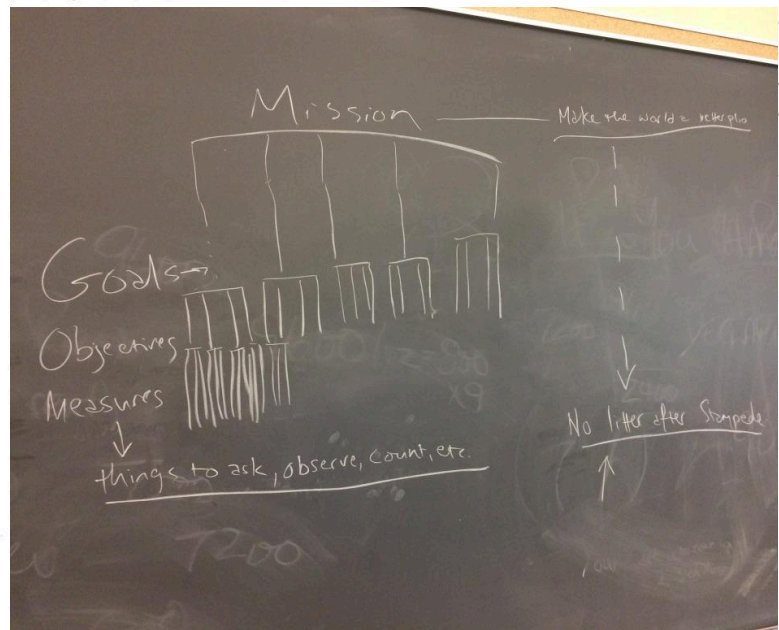 Mission
Make the world a better
Goals
Objectives
Measures
things to ask, observe, count, etc.
No litter after Stampede
7200